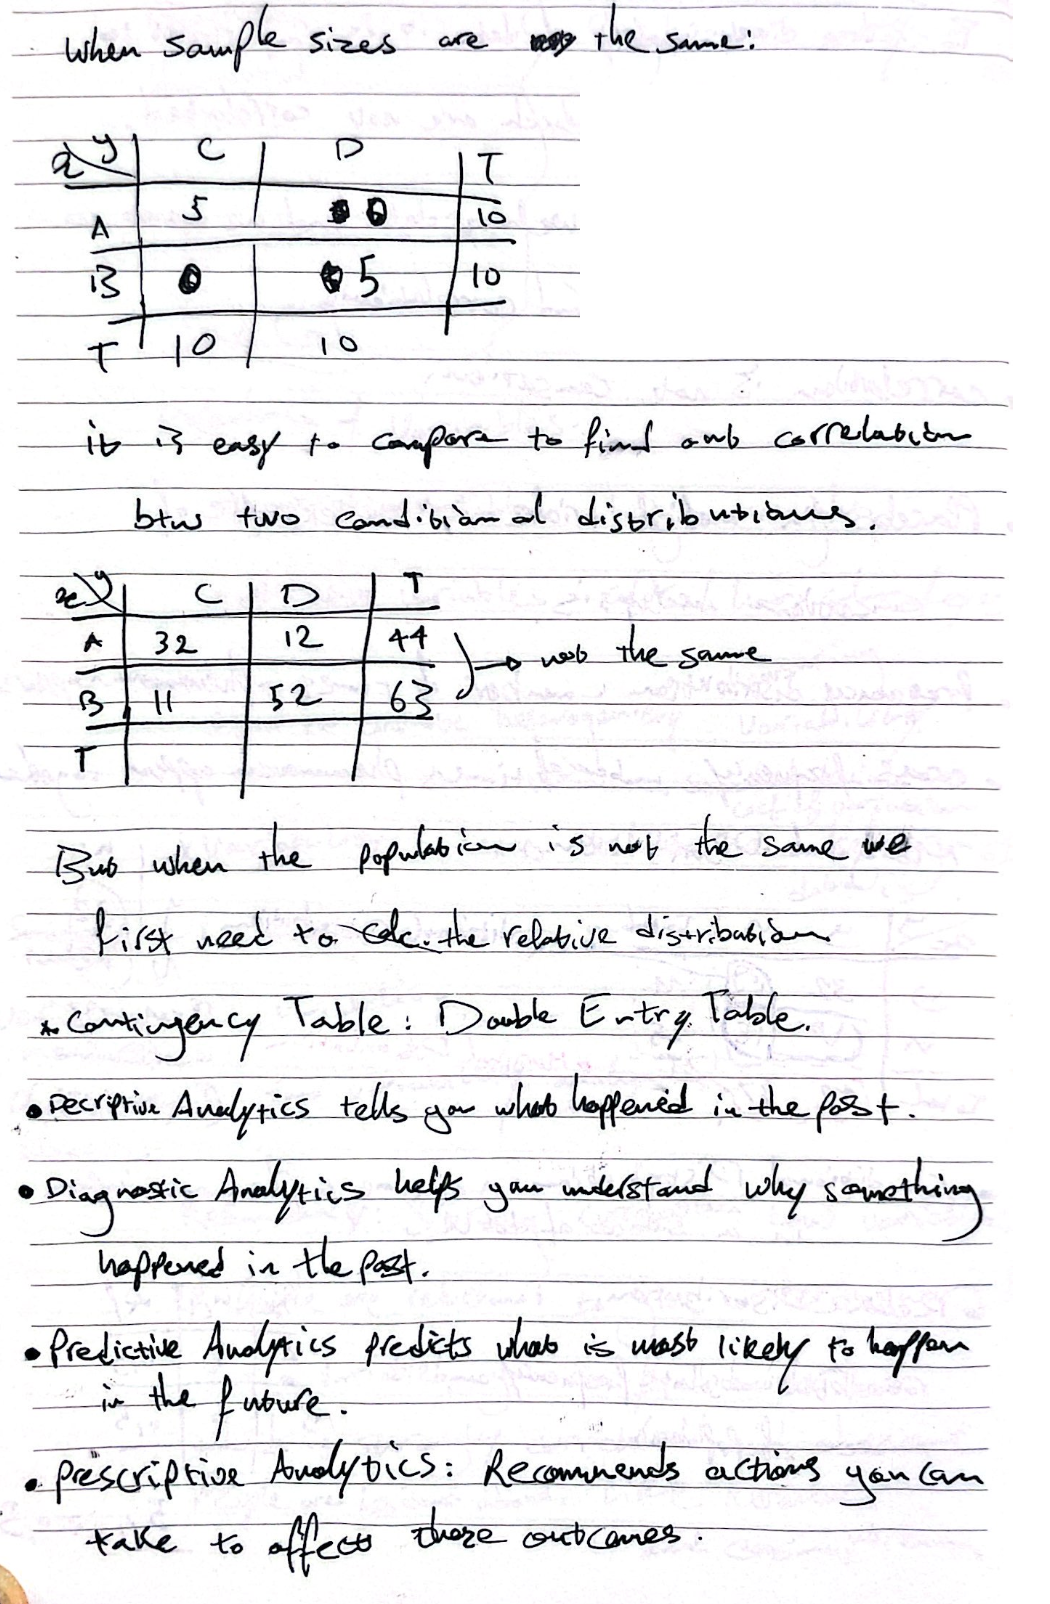 When sample sizes are the same:
x y C D T
A 5 0 10
B 0 5 10
T 10 10
it is easy to compare to find out correlation
btw two conditional distributions.
x y C D T
A 32 12 44
B 11 52 63
→ not the same
T
But when the population is not the same we
first need to calc. the relative distribution
* Contingency Table: Double Entry Table.
• Decriptive Analytics tells you what happened in the past.
• Diagnostic Analytics helps you understand why something
happened in the past.
• Predictive Analytics predicts what is most likely to happen
in the future.
• Prescriptive Analytics: Recommends actions you can
take to affect those outcomes.